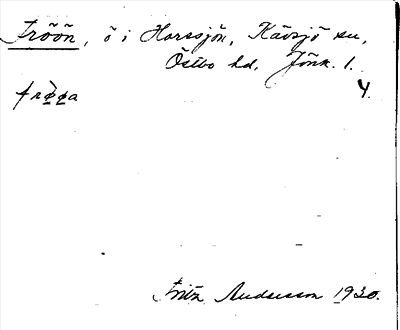 Fröön, ö i Horssjön, Kävsjö sn,
Östbo hd. Jönk. l.
4.
Fritz Andersson 1930.